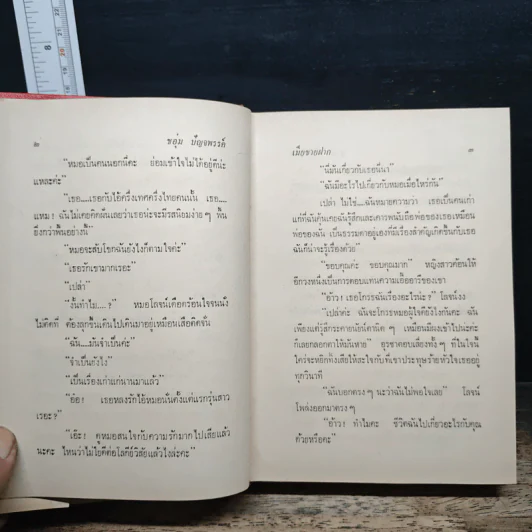 ๒
ชอุ่ม ปัญจพรรค์
"หมอเป็นคนนอกนี่คะ ย่อมเข้าใจไม่ได้อยู่ดีน่ะ
แหละค่ะ"
"เธอ....เธอกับไอ้ครึ่งเทศครึ่งไทยคนนั้น เธอ....
แหม! ฉันไม่เคยคิดฝันเลยว่าเธอน่ะจะมีรสนิยมง่าย ๆ พื้น
ยิ่งกว่าพื้นอย่างนี้"
"หมอจะสับโขกฉันยังไงก็ตามใจค่ะ"
"เธอรักเขามากเรอะ"
"เปล่า"
"งั้นทำไม....?" หมอโลจน์เดือดร้อนใจจนนั่ง
ไม่ติดที่ ต้องลุกขึ้นเดินไปเดินมาอยู่เหมือนเสือติดจั่น
"ฉัน....มันจำเป็นค่ะ"
"จำเป็นยังไง"
"เป็นเรื่องเก่าแก่นานมาแล้ว"
"อ้อ! เธอหลงรักไอ้หมอนั่นตั้งแต่แรกรุ่นสาว
เรอะ?"
"เอ๊ะ! ดูหมอสนใจกับความรักมากไปเสียแล้ว
นะคะ ไหนว่าไม่ไยดีต่อโลกีย์วิสัยแล้วไงล่ะคะ"
เมียขายฝาก
๓
"นี่มันเกี่ยวกับเธอนี่นา"
"ฉันมีอะไรไปเกี่ยวกับหมอเมื่อไหร่กัน"
เปล่า ไม่ใช่....ฉันหมายความว่า เธอเป็นคนเก่า
แก่ที่ฉันคุ้นเคยฉันรู้สึกและเคารพนับถือพ่อของเธอเหมือน
พ่อของฉัน เป็นธรรมดาอยู่เองที่มีเรื่องสำคัญเกิดขึ้นกับเธอ
ฉันก็น่าจะรู้เรื่องด้วย"
"ขอบคุณค่ะ ขอบคุณมาก" หญิงสาวค้อนให้
อีกวงหนึ่งเป็นการตอบแทนความเอื้ออารีของเขา
"อ้าว! เธอโกรธฉันเรื่องอะไรน่ะ?" โลจน์งง
"เปล่าค่ะ ฉันจะโกรธหมอผู้ใจดียังไงกันคะ ฉัน
เพียงแต่รู้สึกระคายนัยน์ตานิด ๆ เหมือนมีผงเข้าไปน่ะค่ะ
ก็เลยกลอกตาให้มันหาย" ธุรชาตอบเลี่ยงทั้ง ๆ ที่ในใจนี้
ใคร่จะหยิกทึ้งเสียให้สะใจกับที่เขาประทุษร้ายหัวใจเธออยู่
ทุกวินาที
"ฉันบอกตรง ๆ นะว่าฉันไม่พอใจเลย" โลจน์
โพล่งออกมาตรง ๆ
"อ้าว! ทำไมคะ ชีวิตฉันไปเกี่ยวอะไรกับคุณ
ด้วยหรือคะ"
8